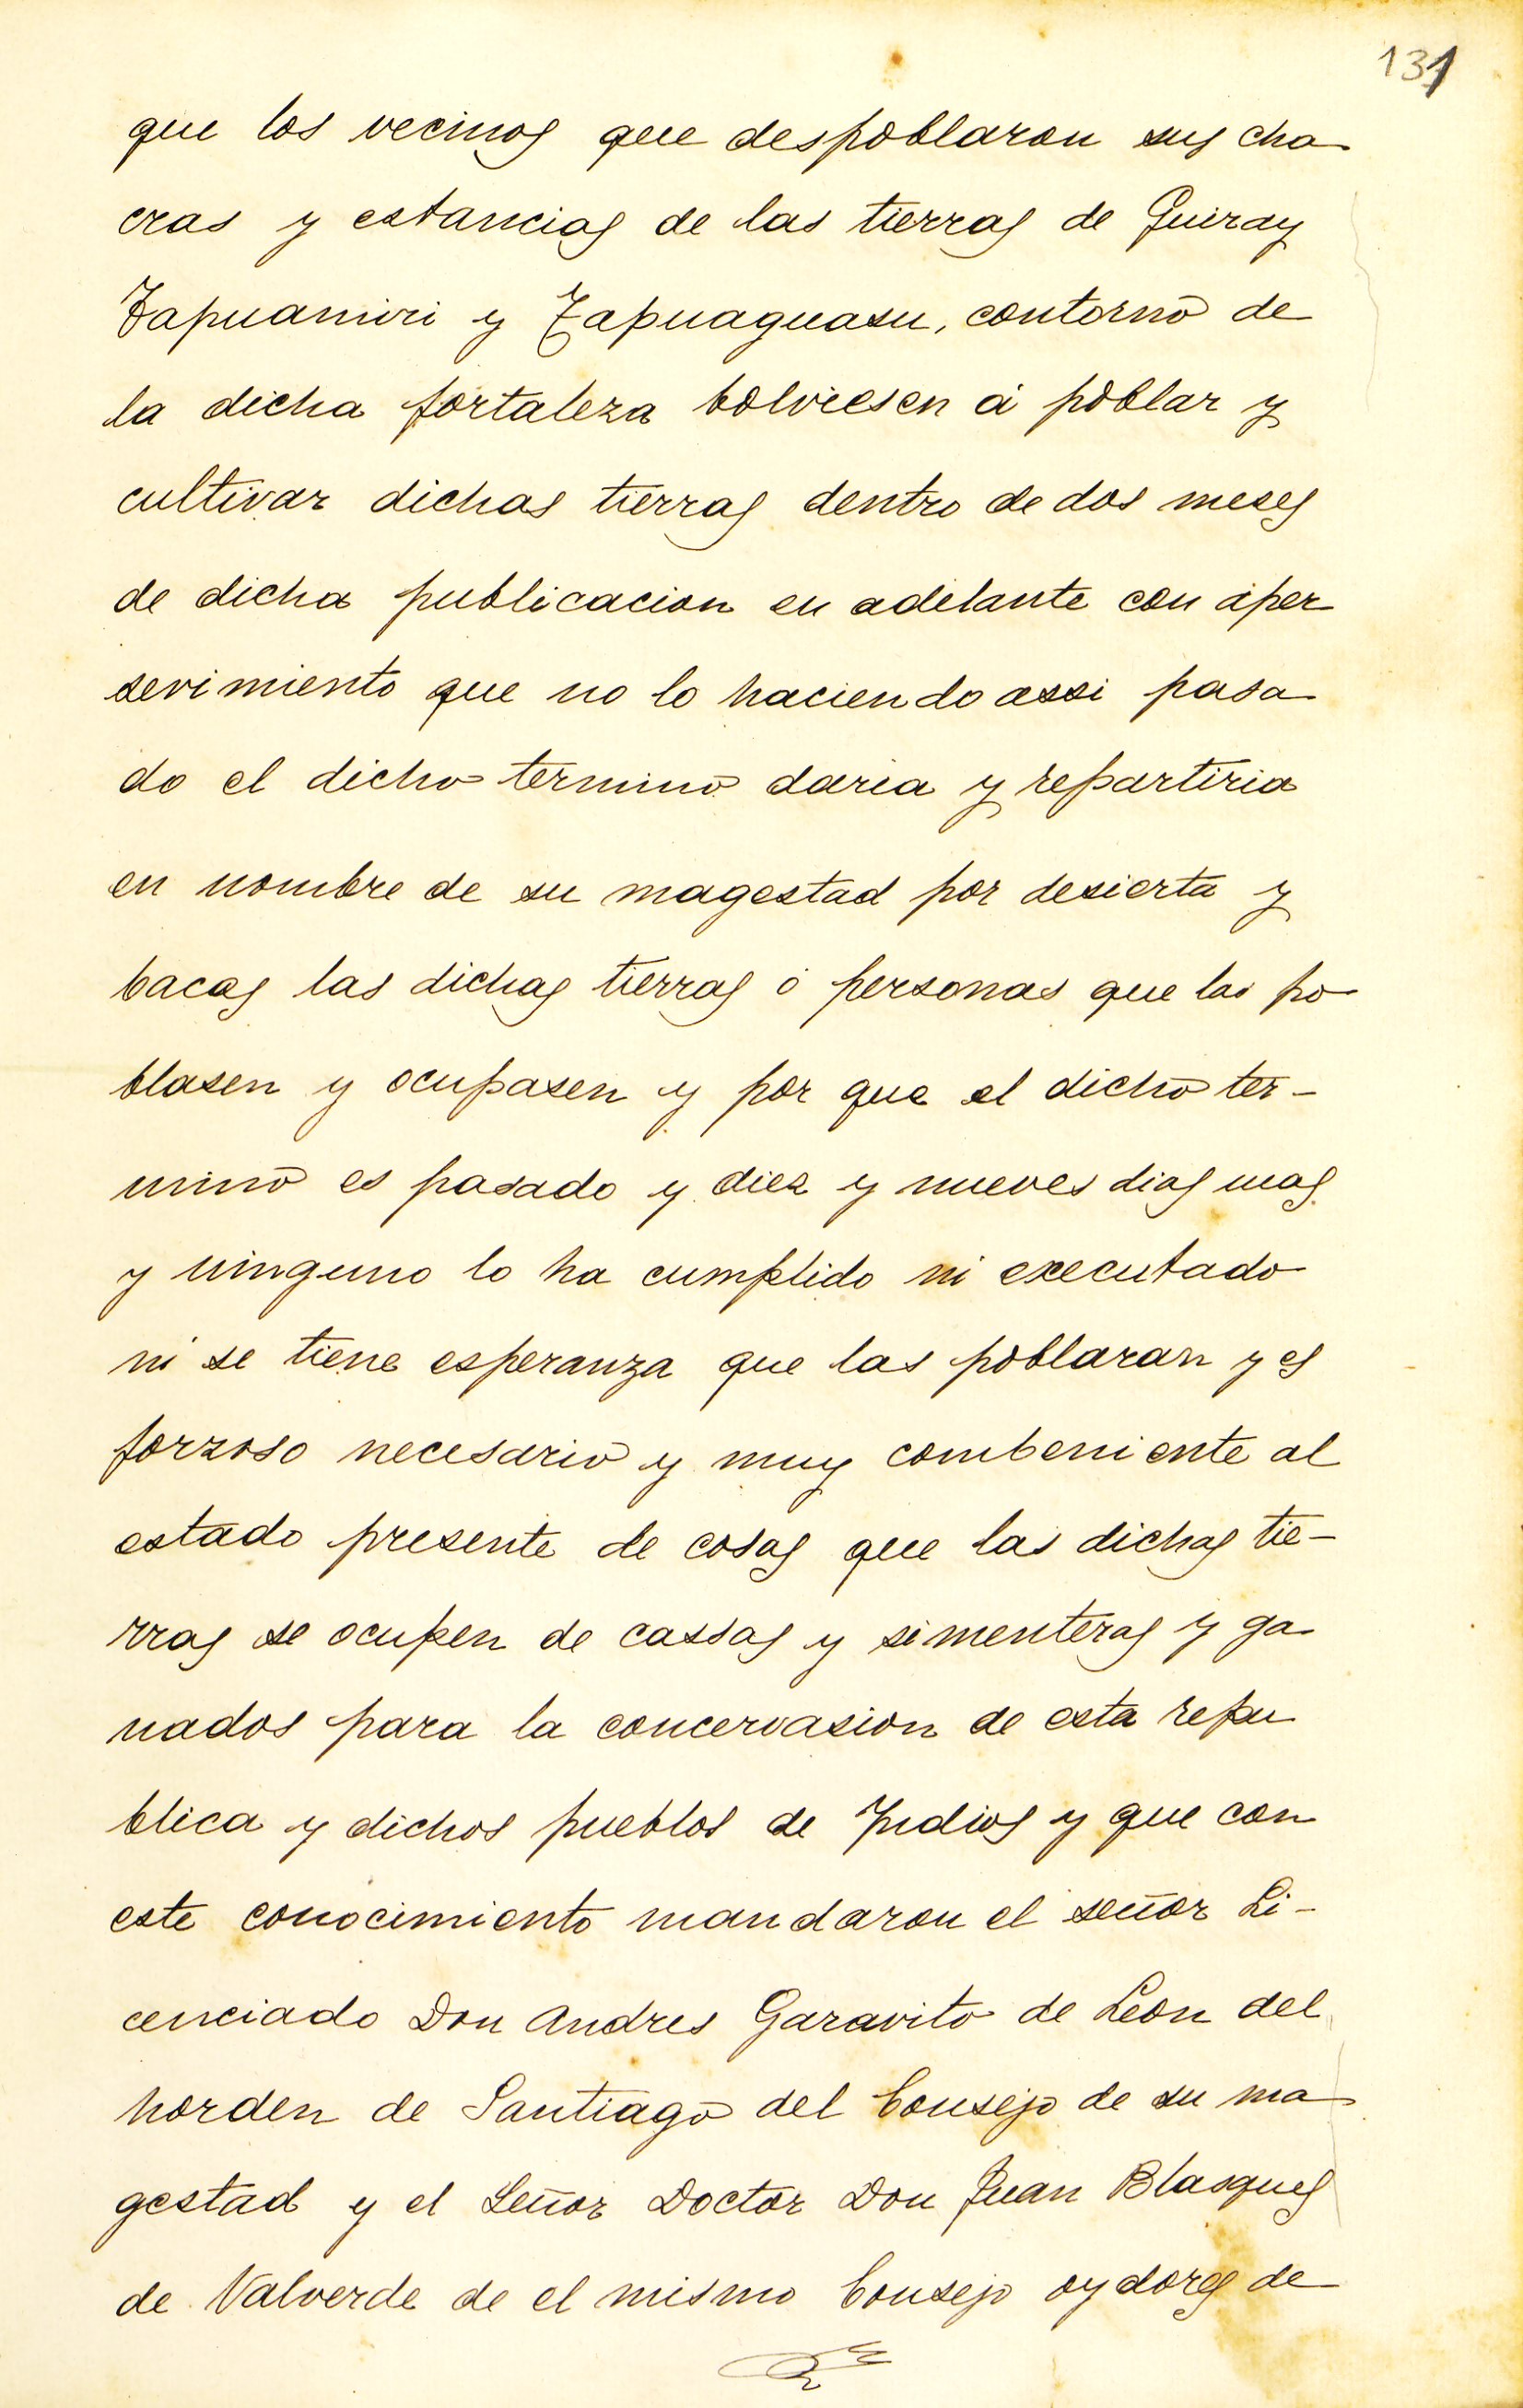 131
que los vecinos que despoblaron sus cha
cras y estancias de las tierras de Quiray
Tapuamiri y Tapuaguasu, contorno de
la dicha fortaleza bolviesen á poblar y
cultivar dichas tierras dentro de dos meses
de dicha publicacion en adelante con áper
sevimiento que no lo haciendo assi pasa
do el dicho termino daria y repartiria
en nombre de su magestad por desierta y
bacas las dichas tierras ó personas que las po
blasen y ocupasen y por que el dicho ter-
mino es pasado y diez y nueves dias mas
y ninguno lo ha cumplido ni executado
ni se tiene esperanza que las poblaran y es
forzoso necesario y muy combeniente al
estado presente de cosas que las dichas tie-
rras se ocupen de cassas y simenteras y ga
nados para la concervasion de esta repu
blica y dichos pueblos de Yndios y que con
este conocimiento mandaron el señor Li-
cenciado Don Andres Garavito de Leon del
horden de Santiago del Consejo de su ma
gestad y el Señor Doctor Don Juan Blasques
de Valverde de el mismo Consejo oydores de